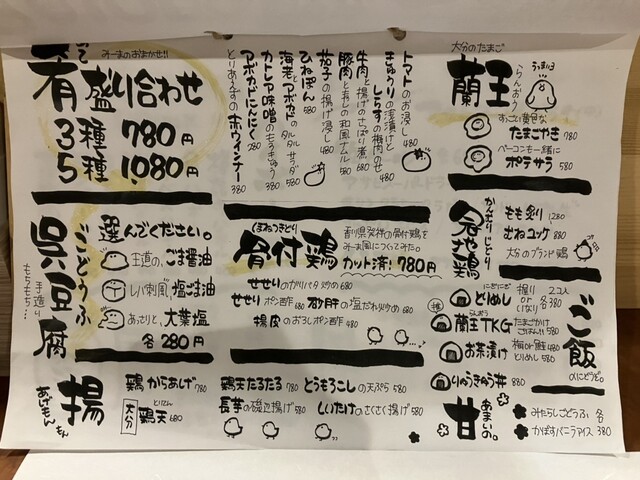 みーまのおまかせ!!
肴盛り合わせ
3種 780円
5種 1,080円
トマトのお浸し 480
きゅうりの浅漬けと
とらすの梅肉のせ 480
牛肉と
揚げのさっぱり煮 680
豚肉と
もやしの和風ナムル 580
茄子の揚げ浸し 480
ひねぽん 580
海老とアボカドのタルタルサラダ 580
カトレア味噌のもろきゅう 380
アボカドにんにく 380
とりあえずの赤ウィンナー 380
大分のたまご
蘭王
らんおう
すっごい黄色な
たまごやき 780
ベーコンも一緒に
ポテサラ 580
呉豆腐
ごどうふ
手造り
もちもち…
選んでください。
王道の、ごま醤油
レバ刺風、塩ごま油
あさりと、大葉塩
各280円
骨付鶏
(ほねつきどり)
香川県発祥の骨付鶏を
みーま風につくってみた。
カット済:780円
せせりのガリバタ炒め 680
せせりポン酢 680
砂肝の塩だれ炒め 680
揚皮のおろしポン酢 480
冠地鶏
かんむりじどり
もも炙り 1280
むねユッケ 980
大分のブランド鶏
ご飯
のにどうぞ。
とりめし
握り or いなり
2コ入 各380
蘭王TKG
らんおう
たまごかけごはん!! 580
お茶漬け
梅or鮭 480
とりめし 580
りゅうきゅう丼 880
揚
あげもんもん
鶏からあげ 780
大分 鶏天 680
とりてん
鶏天たるたる 780
とうもろこしの天ぷら 580
長芋の磯辺揚げ 580
しいたけのさくさく揚げ 580
甘
あまいの。
みたらしごどうふ 各
かぼすバニラアイス 380